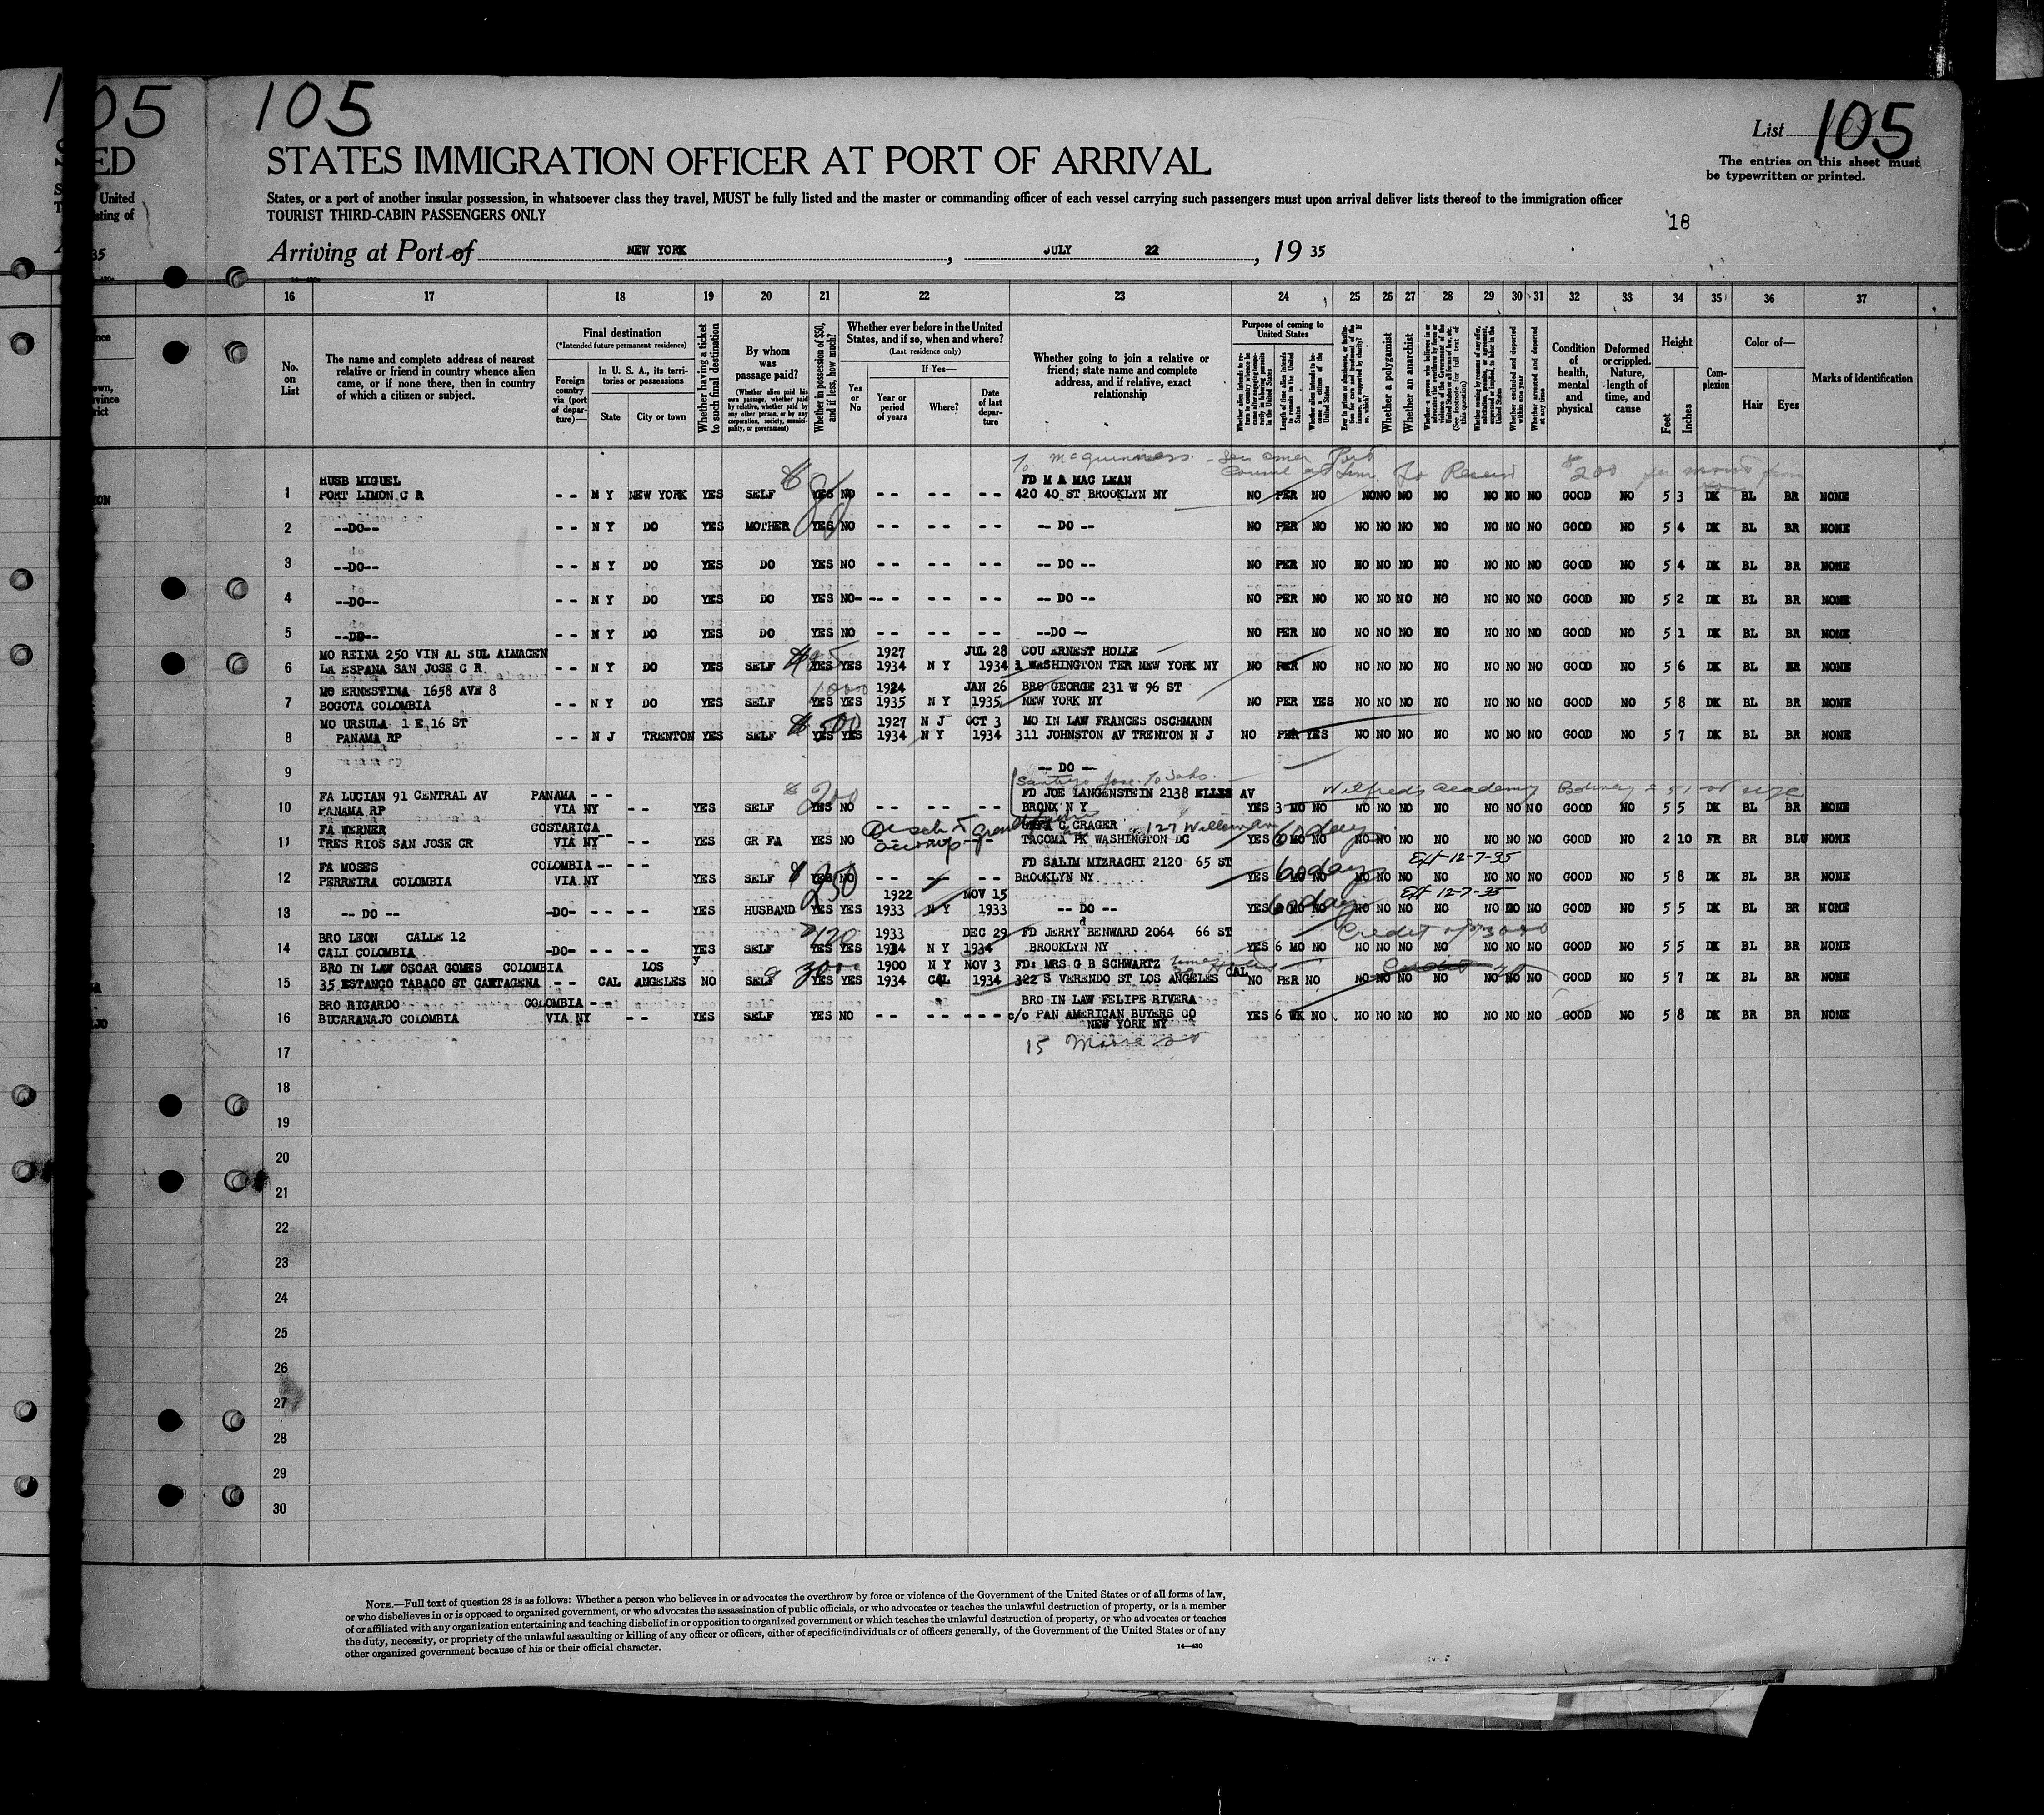 105
105
105
ED
United
sting of
35
STATES IMMIGRATION OFFICER AT PORT OF ARRIVAL
List 105
The entries on this sheet must
be typewritten or printed.
States, or a port of another insular possession, in whatsoever class they travel, MUST be fully listed and the master or commanding officer of each vessel carrying such passengers must upon arrival deliver lists thereof to the immigration officer
TOURIST THIRD-CABIN PASSENGERS ONLY
18
Arriving at Port of NEW YORK, JULY 22, 19 35
16 17 18 19 20 21 22 23 24 25 26 27 28 29 30 31 32 33 34 35 36 37
No. on List
The name and complete address of nearest relative or friend in country whence alien came, or if none there, then in country of which a citizen or subject.
Final destination
(*Intended future permanent residence)
Foreign country via (port of departure)—
In U. S. A., its territories or possessions
State
City or town
Whether having a ticket to such final destination
By whom was passage paid?
(Whether alien paid his own passage, whether paid by relative, whether paid by any other person, or by any corporation, society, municipality, or government)
Whether in possession of $50, and if less, how much?
Whether ever before in the United States, and if so, when and where?
(Last residence only)
Yes or No
If Yes—
Year or period of years
Where?
Date of last departure
Whether going to join a relative or friend; state name and complete address, and if relative, exact relationship
Purpose of coming to United States
Length of time alien intends to remain in the United States
Whether alien intends to become a citizen of the United States
Whether a polygamist
Whether an anarchist
(See footnote for full text of this question)
Whether arrested and deported at any time
Condition of health, mental and physical
Deformed or crippled. Nature, length of time, and cause
Height
Feet
Inches
Complexion
Color of—
Hair
Eyes
Marks of identification
HUSB MIGUEL FD M A MAC LEAN
1 PORT LIMON C R - - N Y NEW YORK YES SELF YES NO - - - - - - 420 40 ST BROOKLYN NY NO PER NO NO NO NO NO NO NO NO GOOD NO 5 3 DK BL BR NONE
2 --DO-- - - N Y DO YES MOTHER YES NO - - - - - - -- DO -- NO PER NO NO NO NO NO NO NO NO GOOD NO 5 4 DK BL BR NONE
3 --DO-- - - N Y DO YES DO YES NO - - - - - - -- DO -- NO PER NO NO NO NO NO NO NO NO GOOD NO 5 4 DK BL BR NONE
4 --DO-- - - N Y DO YES DO YES NO- -- - - - - - -- DO -- NO PER NO NO NO NO NO NO NO NO GOOD NO 5 2 DK BL BR NONE
5 --DO-- - - N Y DO YES DO YES NO - - - - - - --DO -- NO PER NO NO NO NO NO NO NO NO GOOD NO 5 1 DK BL BR NONE
MO REINA 250 VIN AL SUL ALMACEN 1927 JUL 28 COU ERNEST HOLLE
6 LA ESPANA SAN JOSE C R. - - N Y DO YES SELF YES YES 1934 N Y 1934 1 WASHINGTON TER NEW YORK NY NO PER NO NO NO NO NO NO NO NO GOOD NO 5 6 DK BL BR NONE
MO ERNESTINA 1658 AVE 8 1000 1924 JAN 26 BRO GEORGE 231 W 96 ST
7 BOGOTA COLOMBIA - - N Y DO YES SELF YES YES 1935 N Y 1935 NEW YORK NY NO PER YES NO NO NO NO NO NO NO GOOD NO 5 8 DK BL BR NONE
MO URSULA 1 E 16 ST $500 1927 N J OCT 3 MO IN LAW FRANCES OSCHMANN
8 PANAMA RP - - N J TRENTON YES SELF YES YES 1934 N Y 1934 311 JOHNSTON AV TRENTON N J NO PER YES NO NO NO NO NO NO NO GOOD NO 5 7 DK BL BR NONE
9 -- DO --
FA LUCIAN 91 CENTRAL AV PANAMA - - $200 FD JOE LANGENSTEIN 2138 ELLIS AV Wilfreds Academy
10 PANAMA RP VIA NY - - YES SELF YES NO - - - - - - BRONX N Y YES 3 MO NO NO NO NO NO NO NO NO GOOD NO 5 5 DK BL BR NONE
FA WERNER COSTARICA -- C. CRAGER 60 days
11 TRES RIOS SAN JOSE CR VIA NY - - YES GR FA YES NO TACOMA PK WASHINGTON DC YES 6 MO NO NO NO NO NO NO NO NO GOOD NO 2 10 FR BR BLU NONE
FA MOSES COLOMBIA -- - - $250 FD SALIM MIZRACHI 2120 65 ST 60 days Ext 12-7-35
12 PERREIRA COLOMBIA VIA NY YES SELF YES NO - - - - - - BROOKLYN NY. YES 6 MO NO NO NO NO NO NO NO NO GOOD NO 5 8 DK BL BR NONE
1922 NOV 15 60 days Ext 12-7-35
13 -- DO -- -DO- - - - - YES HUSBAND YES YES 1933 N Y 1933 -- DO -- YES 6 MO NO NO NO NO NO NO NO NO GOOD NO 5 5 DK BL BR NONE
BRO LEON CALLE 12 120 1933 DEC 29 FD JERRY BENWARD 2064 66 ST
14 CALI COLOMBIA -DO- - - - - YES SELF YES YES 1934 N Y 1934 BROOKLYN NY YES 6 MO NO NO NO NO NO NO NO NO GOOD NO 5 5 DK BL BR NONE
BRO IN LAW OSCAR GOMES COLOMBIA LOS 1900 N Y NOV 3 FD: MRS G B SCHWARTZ CAL
15 35 ESTANCO TABACO ST CARTAGENA - - CAL ANGELES NO SELF YES YES 1934 CAL 1934 322 S VERENDO ST LOS ANGELES NO PER NO NO NO NO NO NO NO NO GOOD NO 5 7 DK BL BR NONE
BRO RICARDO COLOMBIA - - BRO IN LAW FELIPE RIVERA
16 BUCARANAJO COLOMBIA VIA NY - - YES SELF YES NO - - - - - - - c/o PAN AMERICAN BUYERS CO YES 6 WK NO NO NO NO NO NO NO NO GOOD NO 5 8 DK BR BR NONE
NEW YORK NY
17 15 Moore St
18
19
20
21
22
23
24
25
26
27
28
29
30
NOTE.—Full text of question 28 is as follows: Whether a person who believes in or advocates the overthrow by force or violence of the Government of the United States or of all forms of law,
or who disbelieves in or is opposed to organized government, or who advocates the assassination of public officials, or who advocates or teaches the unlawful destruction of property, or is a member
of or affiliated with any organization entertaining and teaching disbelief in or opposition to organized government or which teaches the unlawful destruction of property, or who advocates or teaches
the duty, necessity, or propriety of the unlawful assaulting or killing of any officer or officers, either of specific individuals or of officers generally, of the Government of the United States or of any
other organized government because of his or their official character.
14—430